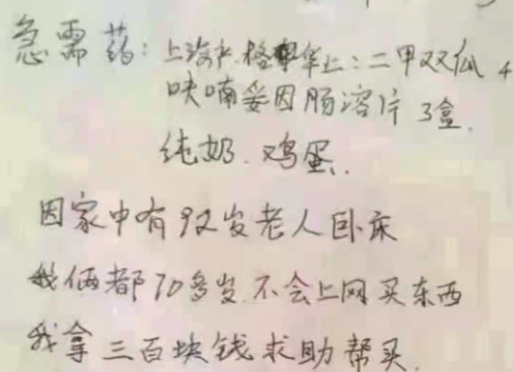 急需药：上海产格华止：二甲双胍 4
呋喃妥因肠溶片 3盒.
纯奶.鸡蛋.
因家中有92岁老人卧床
我俩都70多岁.不会上网买东西
我拿三百块钱求助帮买.